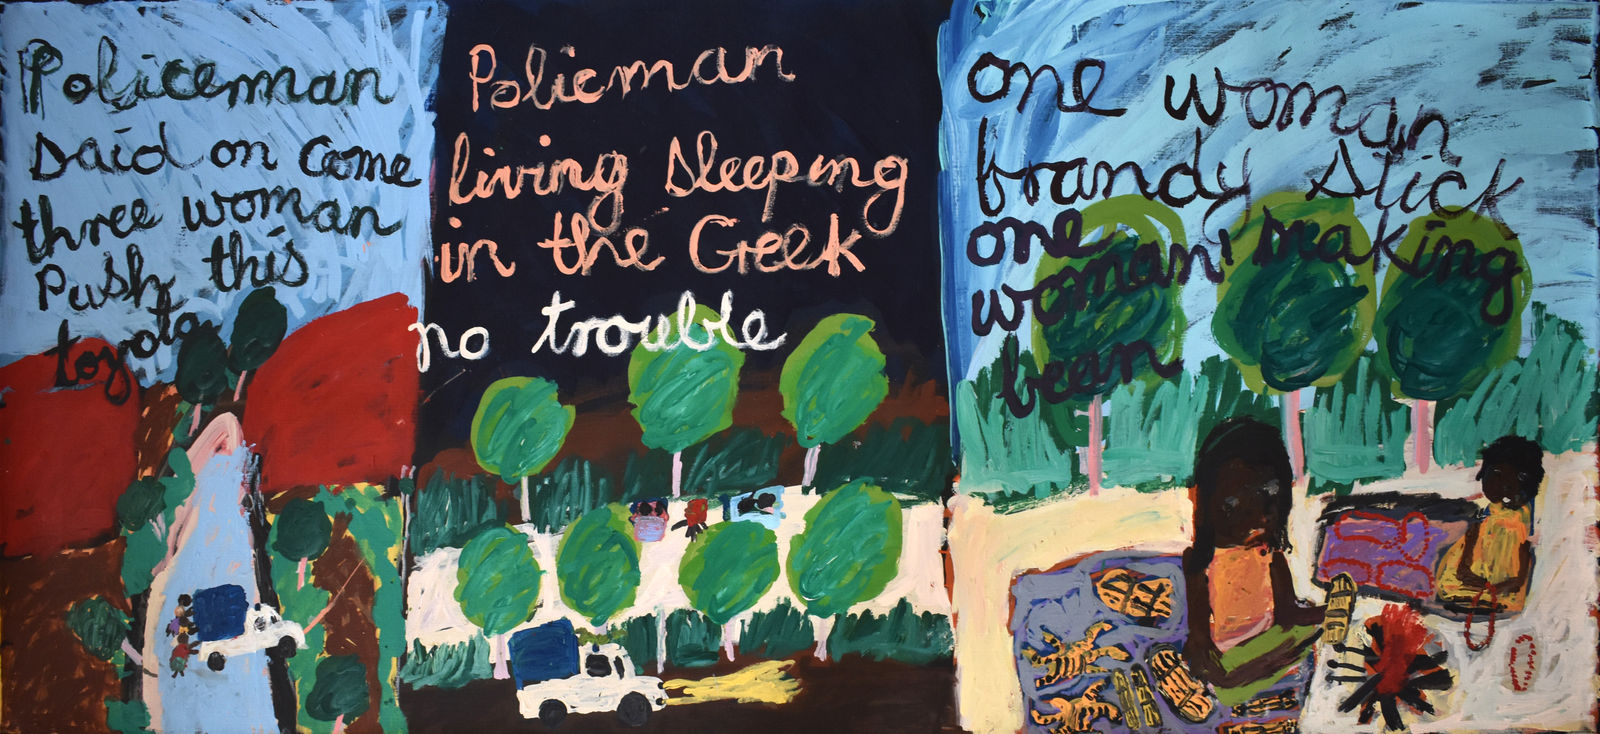 Policeman
said on come
three woman
Push this
toyota
Policman
living sleeping
in the Greek
no trouble
one woman
brandy stick
one
woman making
bean